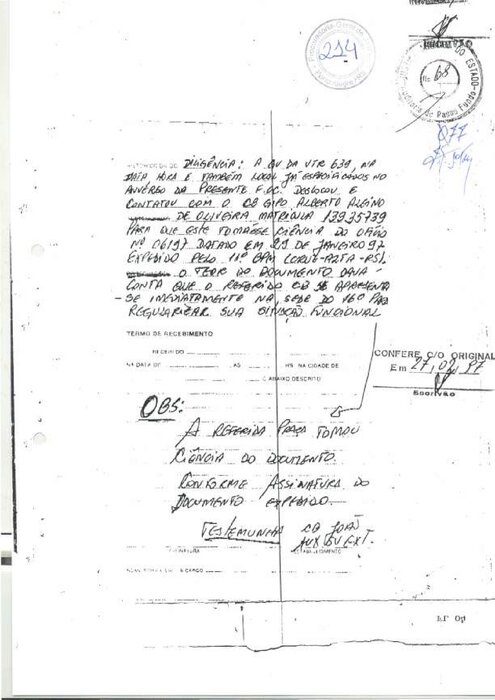 Procuradoria Geral de
214
Porto Alegre
Escrivão
DO ESTADO
fls. 68
de Passo Fundo
077
HISTÓRICO DE DILIGÊNCIA: A GU DA VTR 639, NA
DATA HORA E TAMBÉM LOCAL JÁ ESPECIFICADOS NO
ANVERSO DA PRESENTE F.OC. DESLOCOU E
CONTATOU COM O CB GIPO ALBERTO ALBINO
DE OLIVEIRA MATRÍCULA 13935739
PARA QUE ESTE TOMASSE CIÊNCIA DO
Nº 061 97 DATADO EM 29 DE JANEIRO 97
EXPEDIDO PELO 11º BPM
O TEOR DO DOCUMENTO DAVA
CONTA QUE O REFERIDO CB SE APRESENTA
-SE IMEDIATAMENTE NA SEDE DO 16º PARA
REGULARIZAR SUA SITUAÇÃO FUNCIONAL
TERMO DE RECEBIMENTO
RECEBI DO
NA DATA DE AS HS NA CIDADE DE
O ABAIXO DESCRITO
CONFERE C/O ORIGINAL
Em 27, 02, 97
Escrivão
OBS:
A REFERIDA PRAÇA TOMOU
CIÊNCIA DO DOCUMENTO
CONFORME ASSINATURA DO
DOCUMENTO EXPEDIDO.
TESTEMUNHA CB JOÃO
AUX GU EXT.
ASSINATURA